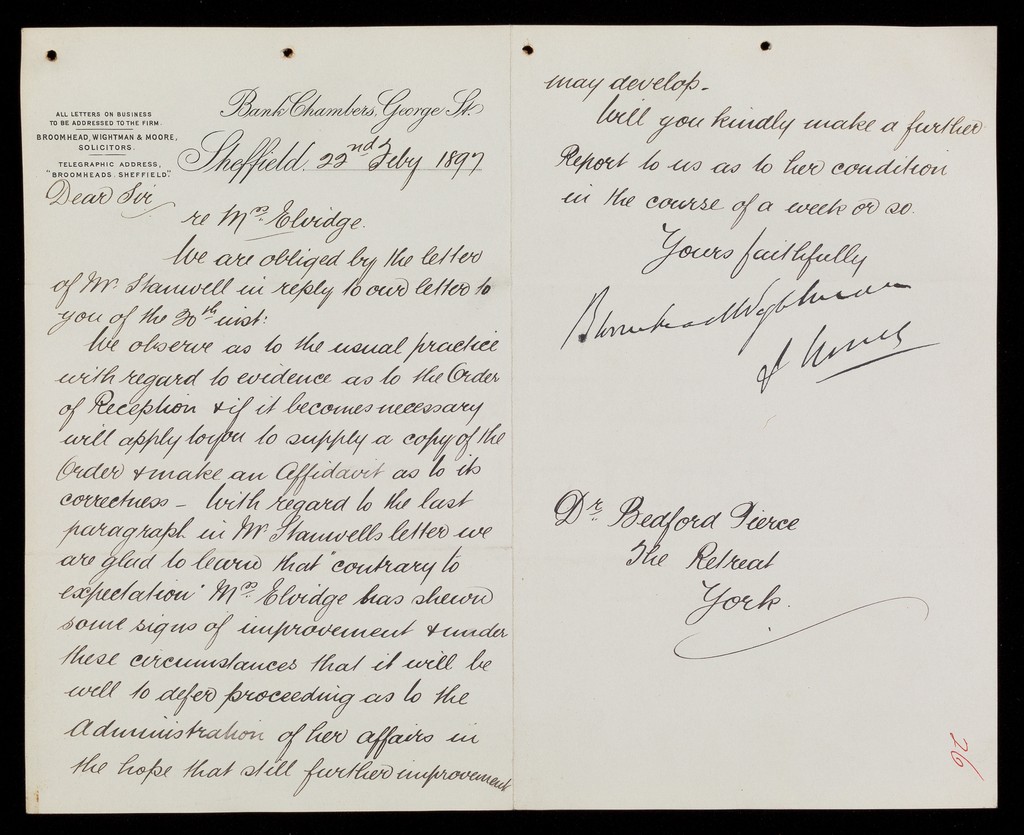 ALL LETTERS ON BUSINESS
TO BE ADDRESSED TO THE FIRM.
BROOMHEAD, WIGHTMAN & MOORE,
SOLICITORS.
TELEGRAPHIC ADDRESS,
"BROOMHEADS. SHEFFIELD."
Bank Chambers, George St.
Sheffield. 22nd Feby 1897
Dear Sir
re Mrs. Elvidge.
We are obliged by the letter
of Mr. Stanwell in reply to our letter to
you of the 20th inst:
We observe as to the usual practice
with regard to evidence as to the Order
of Reception & if it becomes necessary
will apply to you to supply a copy of the
Order & make an Affidavit as to its
correctness - With regard to the last
paragraph in Mr. Stanwells letter we
are glad to learn that "contrary to
expectation" Mrs. Elvidge has shewn
some signs of improvement & under
these circumstances that it will be
well to defer proceeding as to the
Administration of her affairs in
the hope that still further improvement
may develop -
Will you kindly make a further
Report to us as to her condition
in the course of a week or so.
Yours faithfully
Broomhead Wightman
& Moore
Dr. Bedford Pierce
The Retreat
York.
26